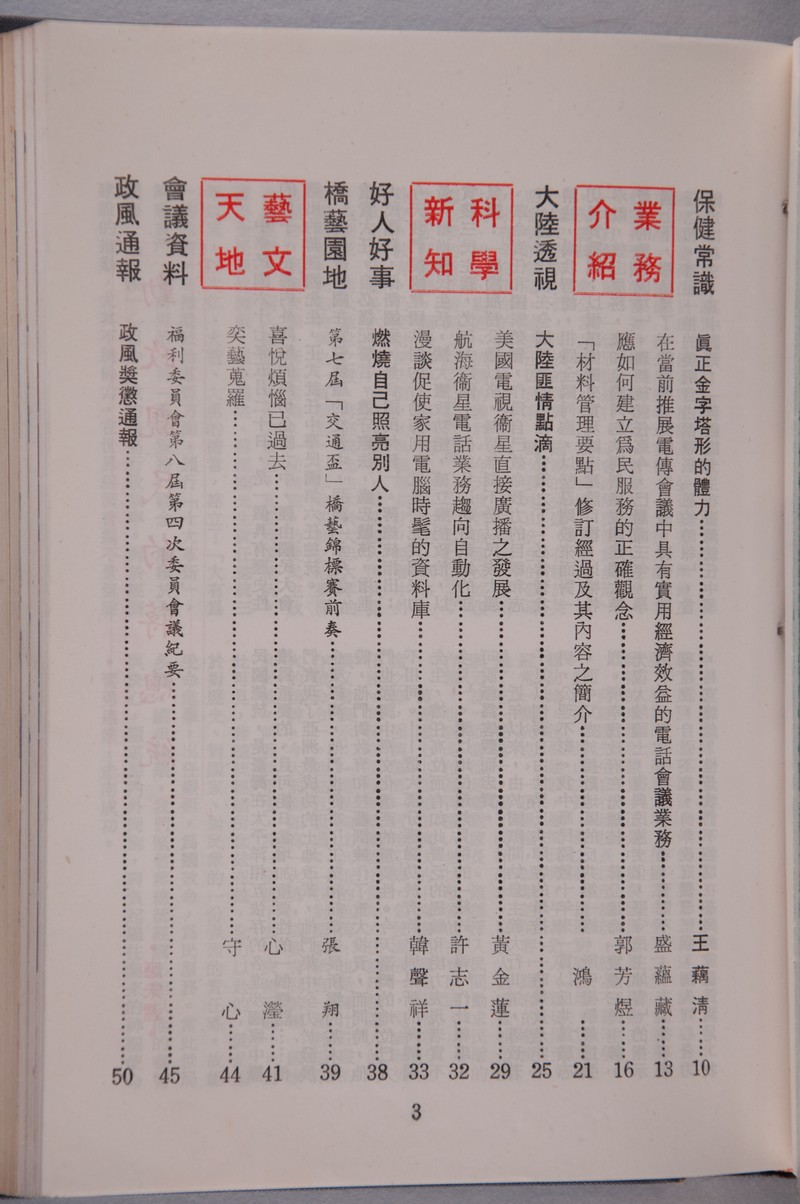 保健常識　眞正金字塔形的體力……王藕淸……10
業務介紹
在當前推展電傳會議中具有實用經濟效益的電話會議業務……盛蘊藏……13
應如何建立爲民服務的正確觀念……郭芳煜……16
「材料管理要點」修訂經過及其內容之簡介……鴻……21
大陸透視　大陸匪情點滴……25
科學新知
美國電視衞星直接廣播之發展……黃金蓮……29
航海衞星電話業務趨向自動化……許志一……32
漫談促使家用電腦時髦的資料庫……韓聲祥……33
好人好事　燃燒自己照亮別人……38
橋藝園地　第七屆「交通盃」橋藝錦標賽前奏……張翔……39
藝文天地
喜悅煩惱已過去……心瀅……41
奕藝蒐羅……守心……44
會議資料　福利委員會第八屆第四次委員會議紀要……45
政風通報　政風獎懲通報……50
3